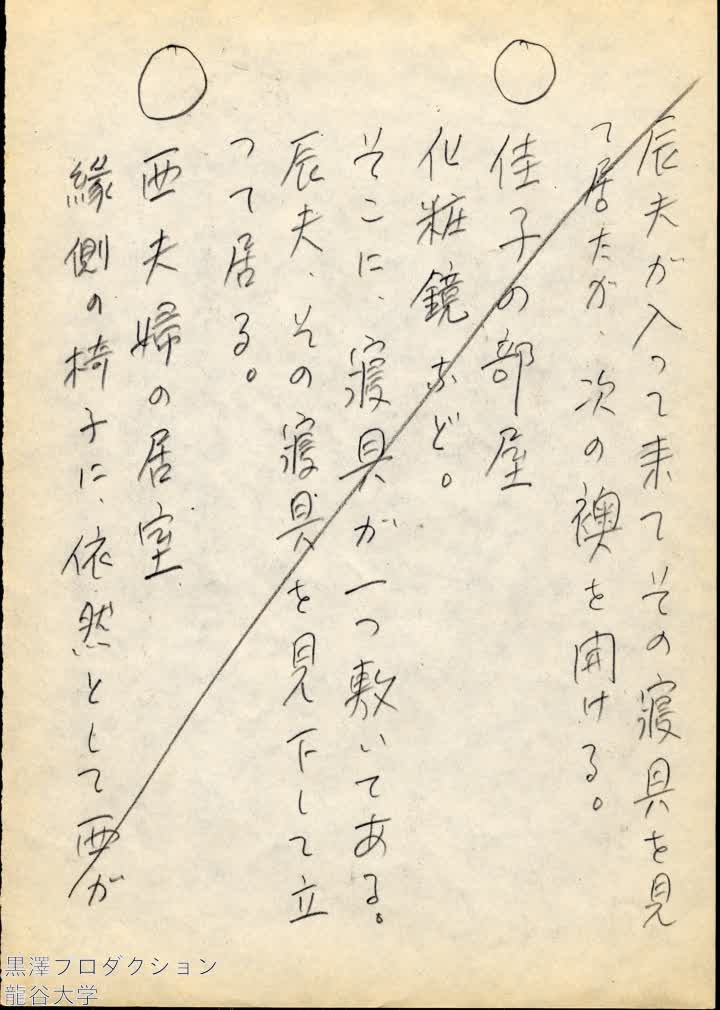 辰夫が入って来てその寝具を見
て居たが、次の襖を開ける。
○佳子の部屋
化粧鏡など。
そこに、寝具が一つ敷いてある。
辰夫、その寝具を見下して立
って居る。
○西夫婦の居室
縁側の椅子に、依然として西が
黒澤プロダクション
龍谷大学